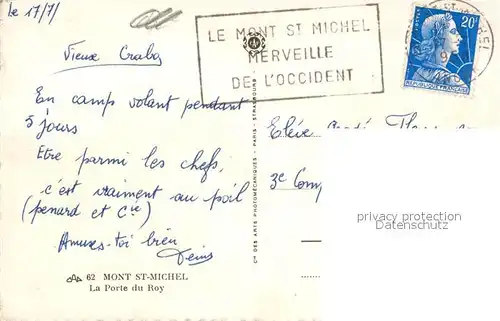 le 17/7/
LE MONT ST MICHEL
MERVEILLE
DE L'OCCIDENT
20F
REPUBLIQUE FRANÇAISE
Vieux Crabe
En camp volant pendant
5 jours
Etre parmi les chefs,
c'est vraiment au poil
(penard et Cie)
Amuses-toi bien
62 MONT ST-MICHEL
La Porte du Roy
CIE DES ARTS PHOTOMÉCANIQUES - PARIS - STRASBOURG
Elève
3e Comp
privacy protection
Datenschutz